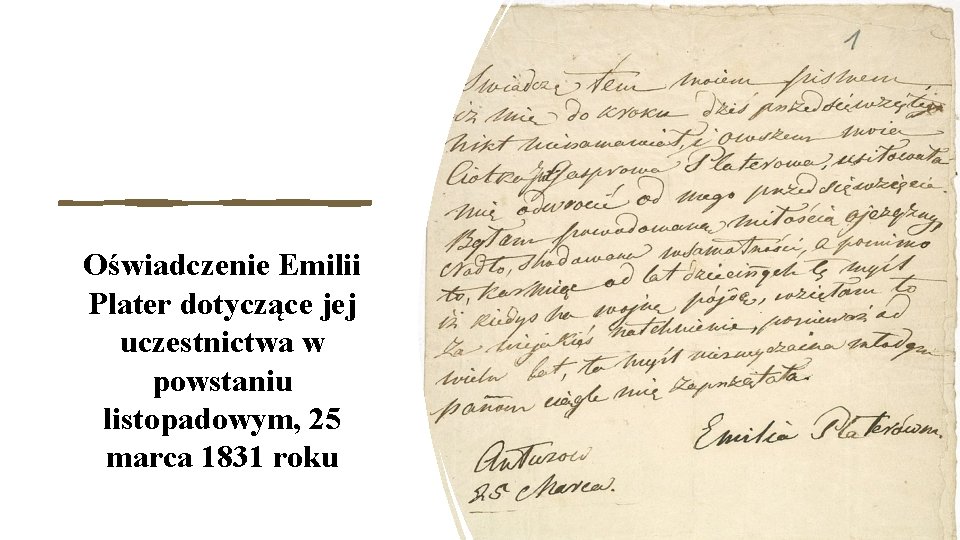 Oświadczenie Emilii
Plater dotyczące jej
uczestnictwa w
powstaniu
listopadowym, 25
marca 1831 roku
1
Świadczę tem moiem pismem
iż mię do kroku dziś przedsięwziętego
nikt nienamawiał, i owszem moia
Ciotka Gasprowa Platerowa, usiłowała
mię odwrócić od mego przedsięwzięcia.
Byłam powodowana miłością ojczyzny,
chowana w samotności, a pomimo
to, karmiąc od lat dziecinnych tę myśl
iż kiedyś na wojnę pójdę, wzięłam to
za niejakieś natchnienie, ponieważ od
wielu lat, ta myśl niezwyczajna młodym
pannom ciągle mię zaprzątała.
Emilia Platerówna.
Antuzow
25 Marca.